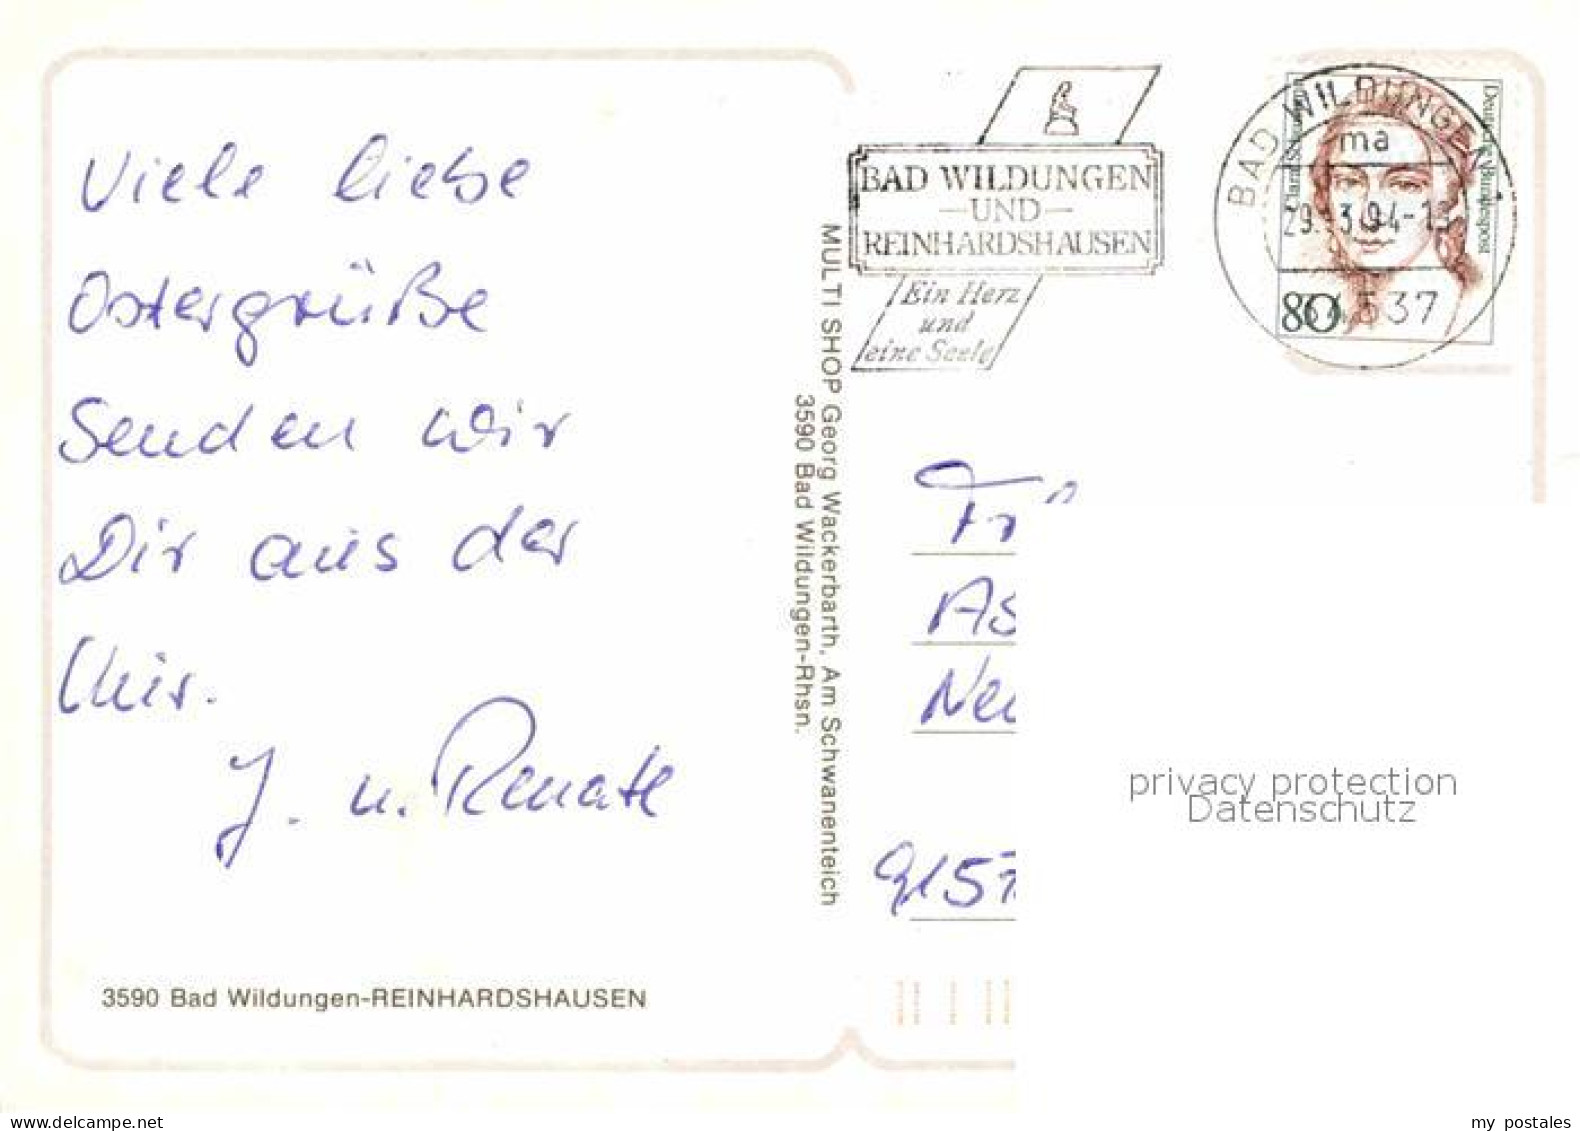 Viele liebe
Ostergrüße
Senden wir
Dir aus der
Kur.
J. u. Renate
3590 Bad Wildungen-REINHARDSHAUSEN
MULTI SHOP Georg Wackerbarth, Am Schwanenteich
3590 Bad Wildungen-Rhsn.
BAD WILDUNGEN
—UND—
REINHARDSHAUSEN
Ein Herz
und
eine Seele
BAD WILDUNGEN
ma
29.-3.94-13
34537
Clara Schumann
Deutsche Bundespost
80
Fr
As
Neu
9157
privacy protection
Datenschutz
my postales